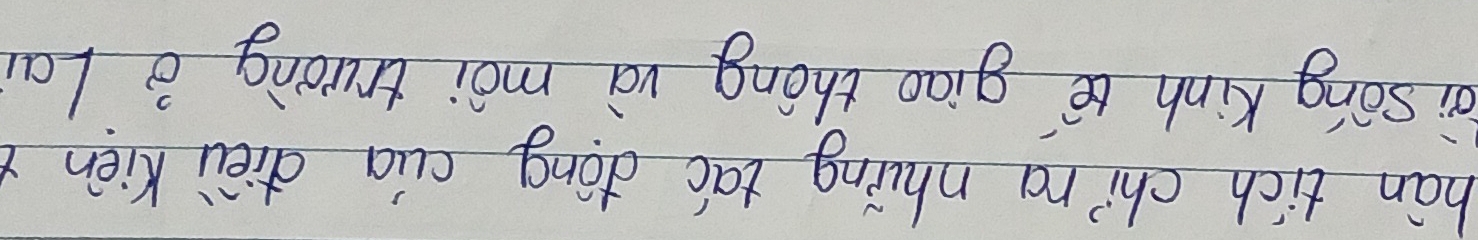 hân tích chỉ ra những tác động của điều kiện t
ời sống kinh tế giao thông và môi trường ở Lai